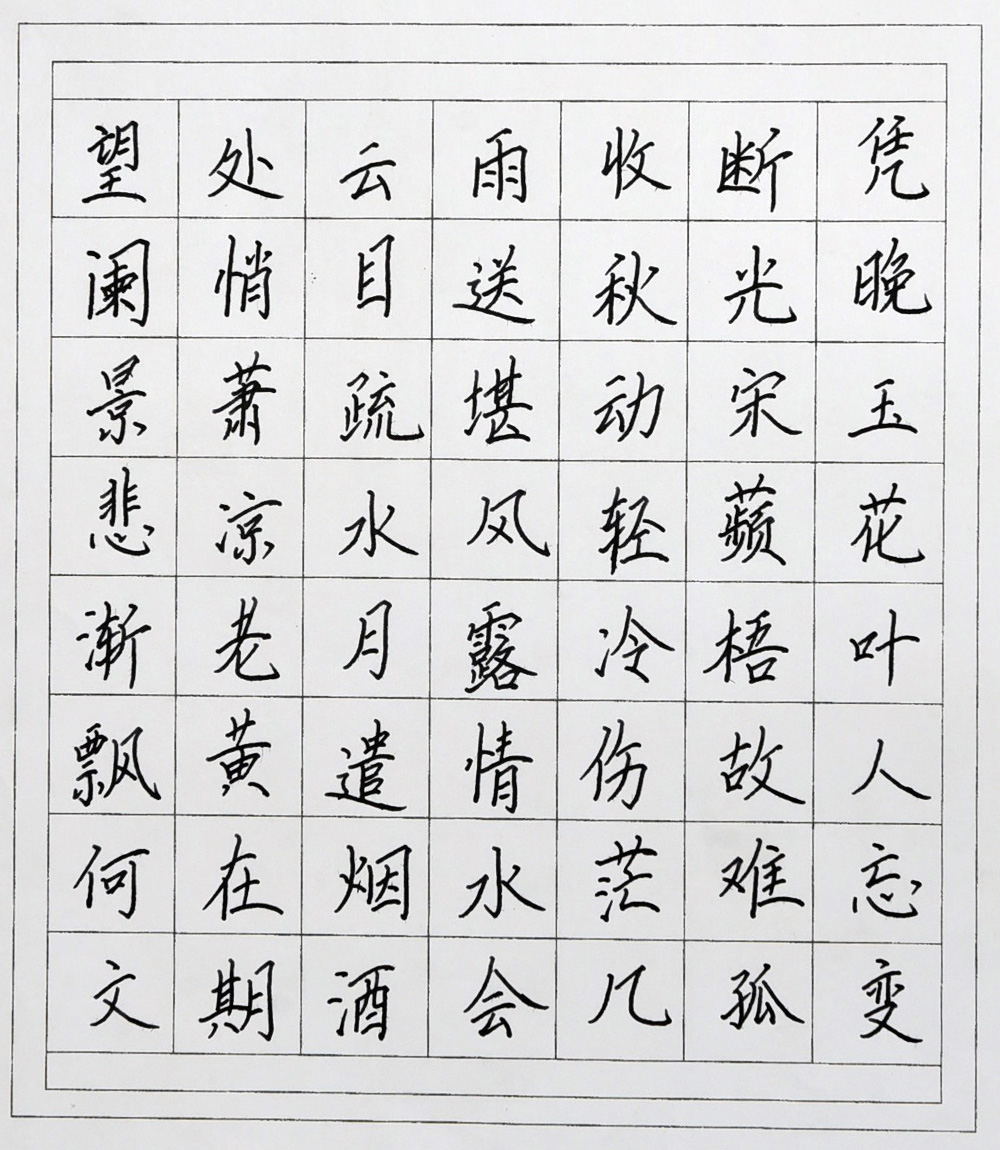 望处云雨收断凭
阑悄目送秋光晚
景萧疏堪动宋玉
悲凉水风轻蘋花
渐老月露冷梧叶
飘黄遣情伤故人
何在烟水茫难忘
文期酒会几孤变